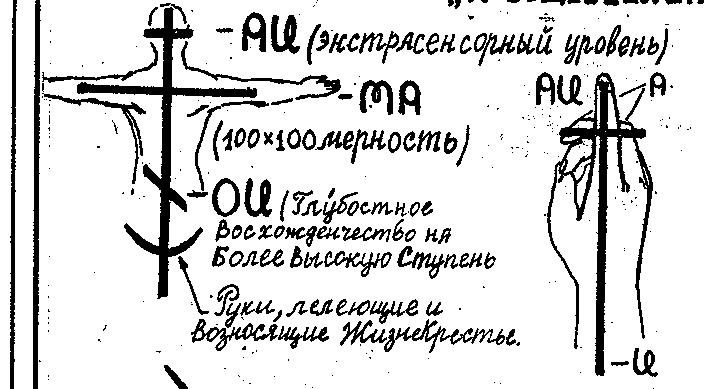 – АЦ (экстрасенсорный уровень)
– МА
(100×100мерность)
– ОЦ (Глубостное
Восхожденчество на
Более Высокую Ступень
Руки, лелеющие и
Возносящие ЖизнеКрестье.
АЦ
А
– Ц